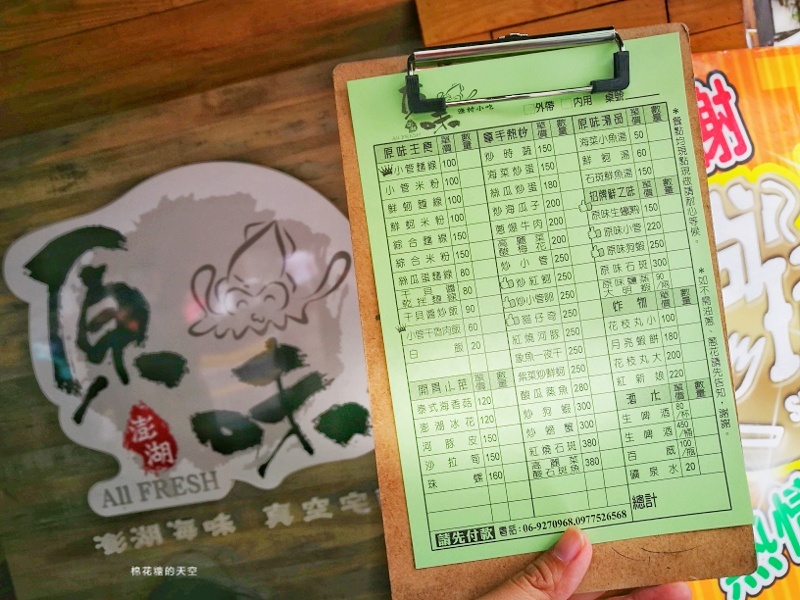 原味
澎湖
All FRESH
澎湖海味 真空宅
棉花糖的天空
原味
澎湖小吃
外帶 內用 桌號
原味主食 單價 數量
小管麵線 100
小管米粉 100
鮮蚵麵線 100
鮮蚵米粉 100
綜合麵線 150
綜合米粉 150
絲瓜蛋麵線 80
干貝醬乾拌麵線 80
干貝醬炒飯 90
小管干香肉飯 60
白飯 20
開胃小菜 單價 數量
泰式海香菇 120
澎湖冰花 120
河豚皮 150
沙拉筍 150
珠螺 160
拿手熱炒 單價 數量
炒時蔬 150
海菜炒蛋 150
絲瓜炒蛋 180
炒海瓜子 200
蔥爆牛肉 200
高麗菜酸梅花 200
炒小管 250
炒紅蚵 250
炒小管卵 250
紅燒河豚 250
象魚一夜干 250
紫菜炒鮮蚵 250
酸瓜蒸魚 280
炒狗蝦 300
炒螃蟹 300
紅燒石斑 380
高麗菜酸石斑魚 380
原味湯品 單價 數量
海菜小魚湯 50
鮮蚵湯 60
石斑鮮魚湯 150
招牌鮮之味 單價 數量
原味生蠔 150
原味小管 220
原味狗蝦 250
原味石斑 300
炸物 單價 數量
花枝丸小 100
月亮蝦餅 180
花枝丸大 200
紅新娘 220
酒水 單價 數量
生啤酒 80/杯
生啤酒 450/瓶
百威 100/瓶
礦泉水 20
總計
請先付款 電話:06-9270968,0977526568
*餐點均現點現做請耐心等候。
*如不需油蔥、蔥花請先告知,謝謝。
謝